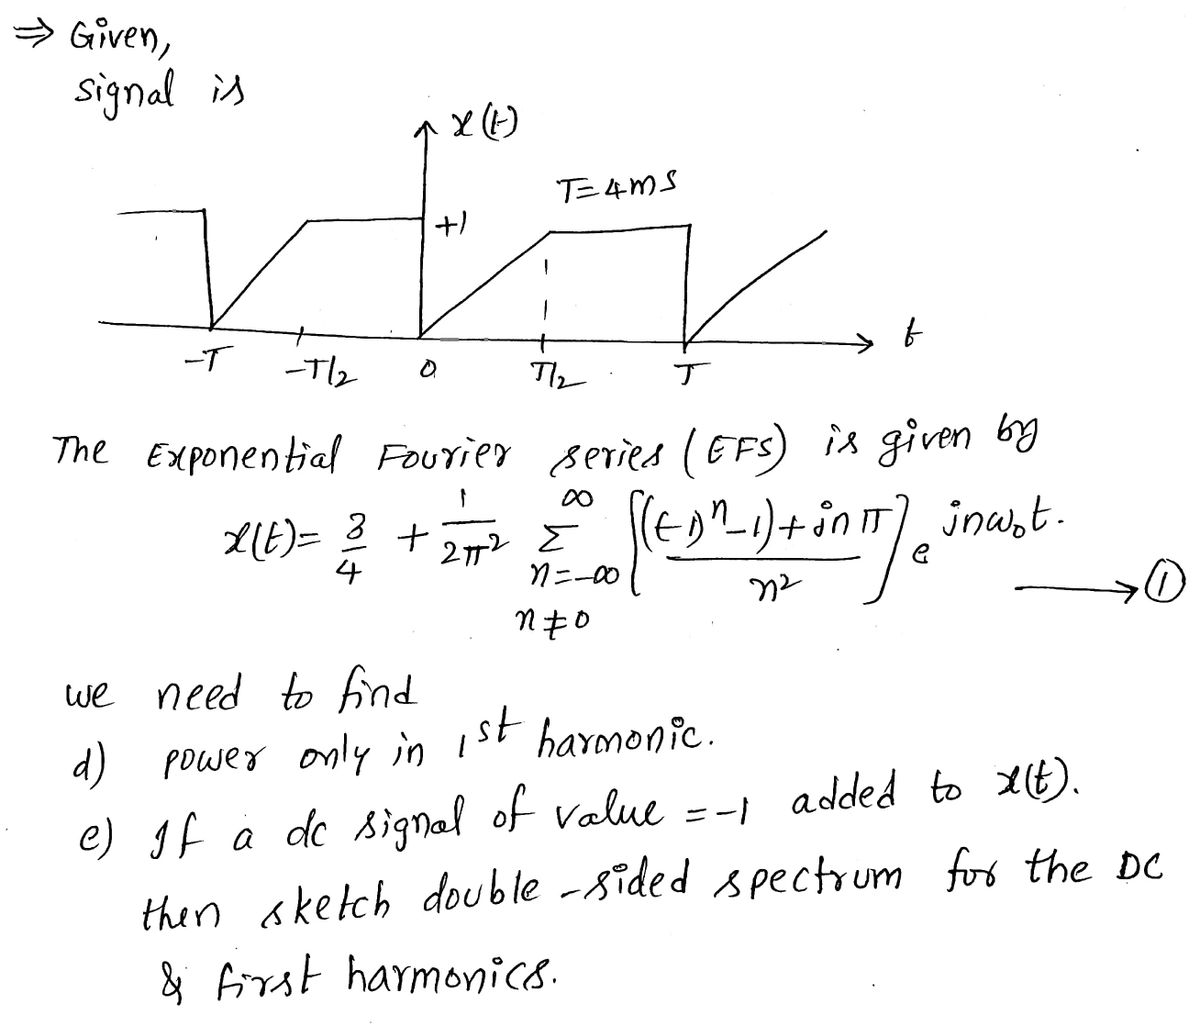 ⇒ Given,
signal is
x(t)
T=4ms
+1
t
-T -T/2 0 T/2 T
The Exponential Fourier series (EFS) is given by
x(t)= 3/4 + 1/2π² ∞Σn=-∞ n≠0 [((-1)ⁿ-1)+jnπ / n²] e jnω₀t. → ①
we need to find
d) power only in 1st harmonic.
e) If a dc signal of value =-1 added to x(t).
then sketch double-sided spectrum for the DC
& first harmonics.